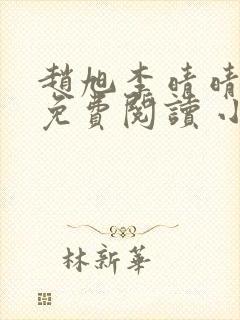 趙旭李晴晴
免費閱讀小
林新華